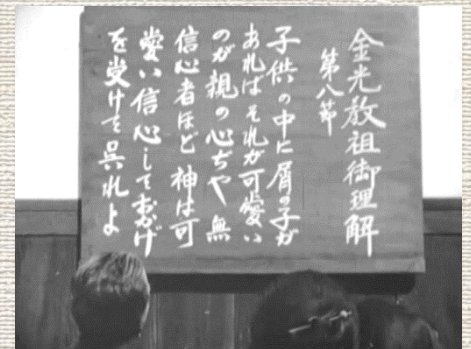 金光教祖御理解
第八節
子供の中に屑の子が
あればそれが可愛い
のが親の心ぢや 無
信心者ほど 神は可
愛い 信心しておかげ
を受けて呉れよ